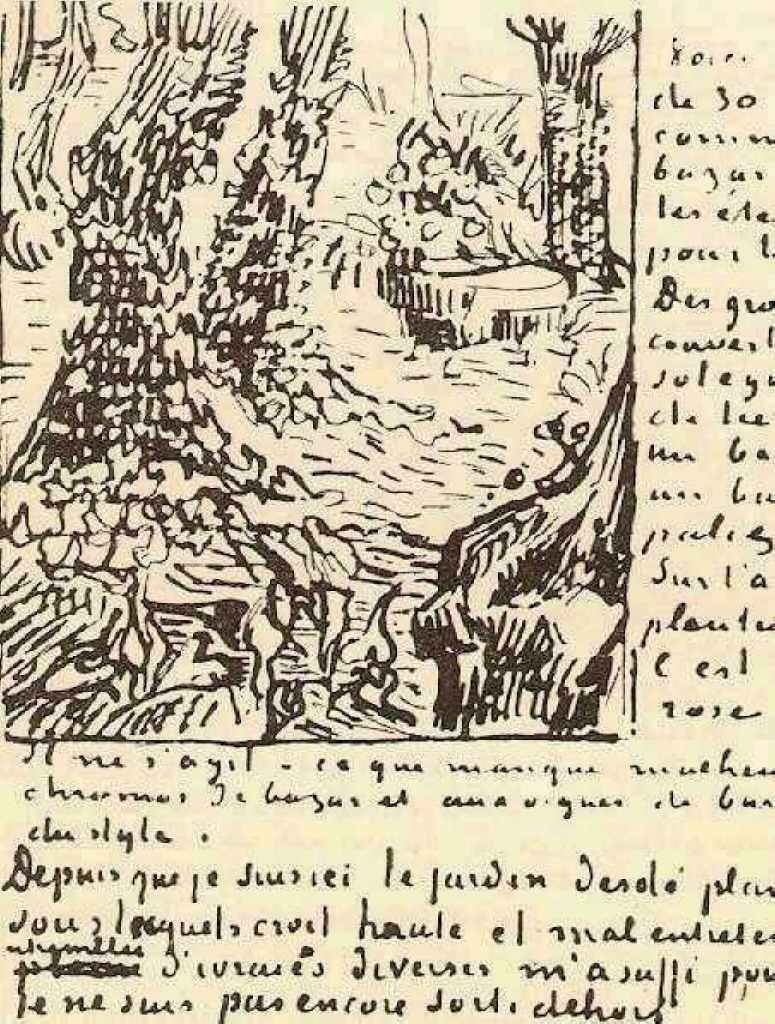 Voici
de 30
comm
bazar
les éte
pour l
Des gro
couvert
sol eg
de lie
un ba
un bu
palies
Sur l'a
plante
C'est
rose
Il ne s'agit - ce que manque malheu
chromos de bazar et aux orgues de bar
du style.
Depuis que je suis ici le jardin desolé plan
sous lesquels croit haute et mal entreten
d'ivraies diverses m'a suffi pou
je ne suis pas encore sorti dehors